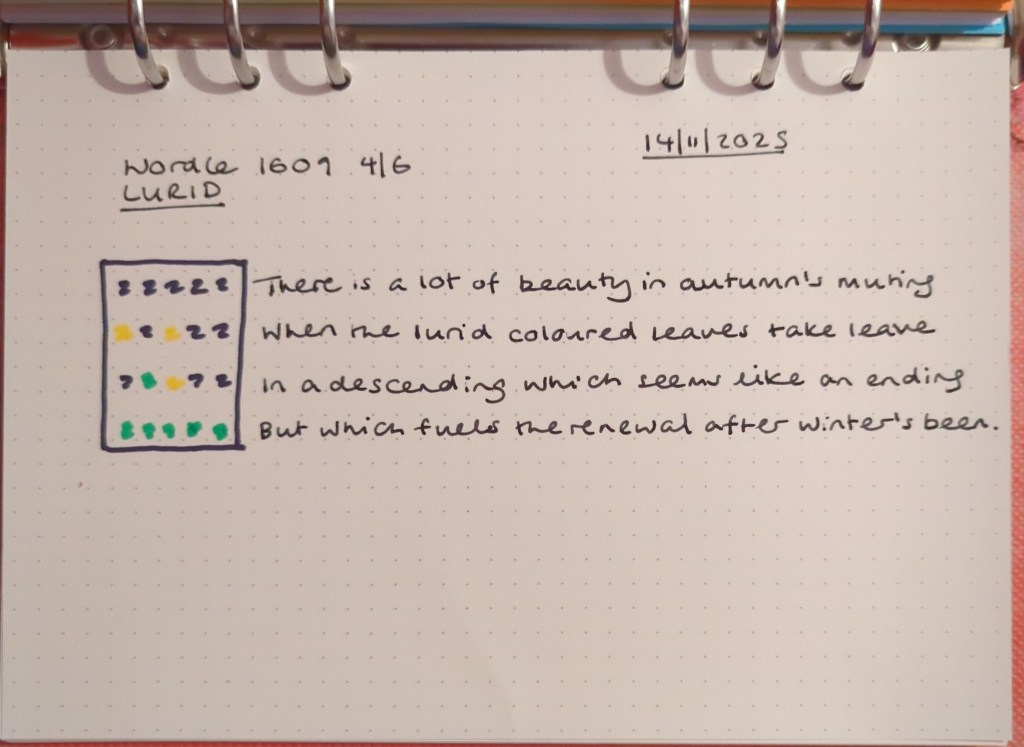 14/11/2025
Wordle 1609 4/6
LURID
There is a lot of beauty in autumn's muting
When the lurid coloured leaves take leave
In a descending which seems like an ending
But which fuels the renewal after winter's been.